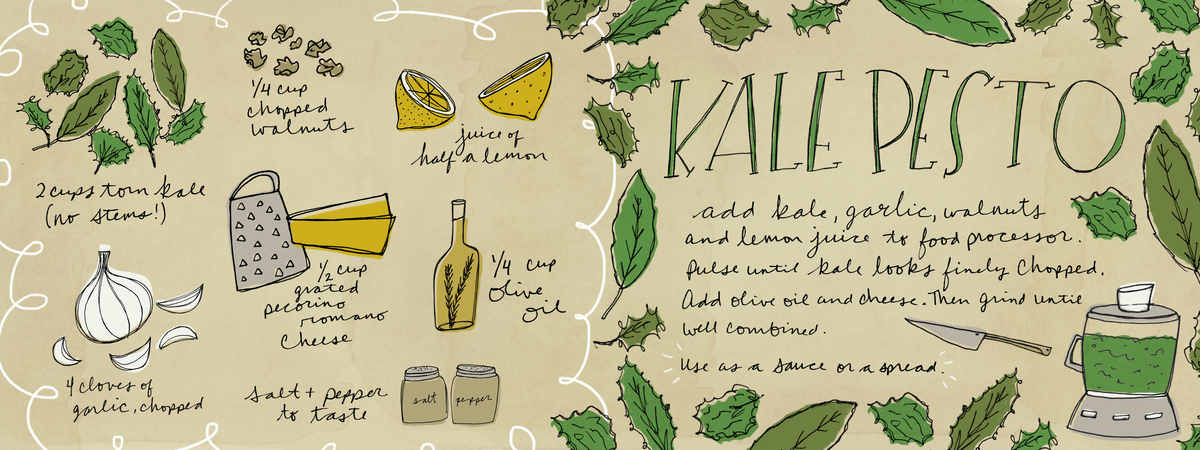 2 cups torn kale
(no stems!)
1/4 cup
chopped
walnuts
juice of
half a lemon
4 cloves of
garlic, chopped
1/2 cup
grated
pecorino
romano
cheese
1/4 cup
olive
oil
salt + pepper
to taste
salt
pepper
KALE PESTO
add kale, garlic, walnuts
and lemon juice to food processor.
Pulse until kale looks finely chopped.
Add olive oil and cheese. Then grind until
well combined.
Use as a sauce or a spread.